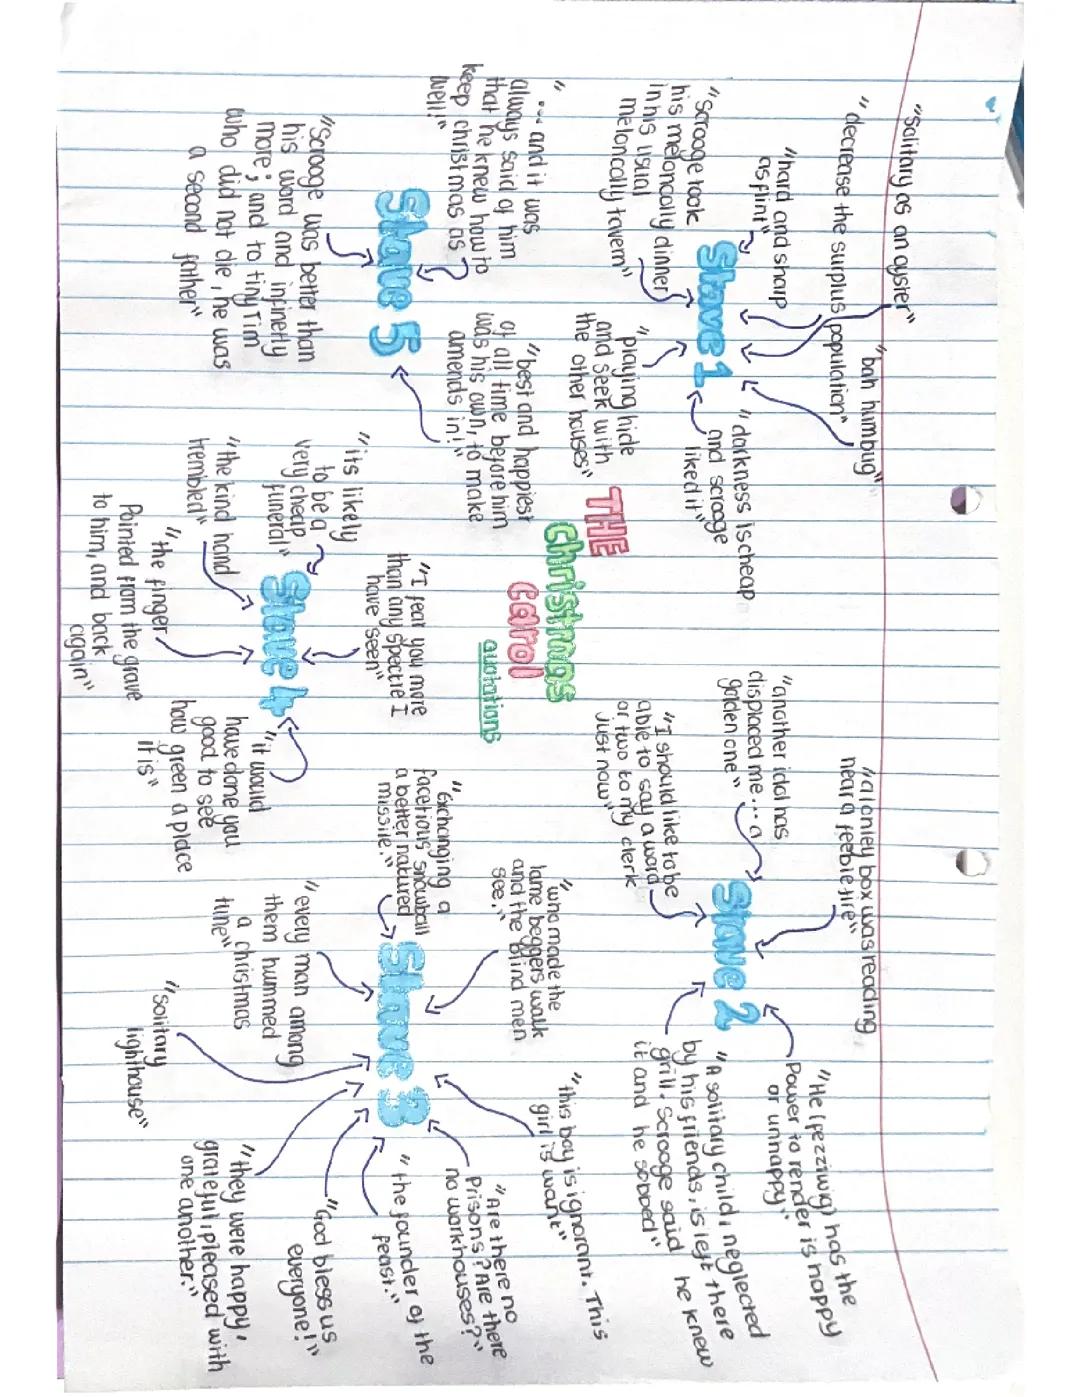 THE
Christmas
carol
quotations
Stave 1
"solitary as an oyster"
"bah humbug"
"decrease the surplus population"
"hard and sharp
as flint"
"scrooge took
his meloncally dinner
in his usual
meloncally tavern"
"playing hide
and seek with
the other houses"
"darkness is cheap
and scrooge
liked it"
Stave 2
"a lonley boy was reading
near a feeble fire"
"another idol has
displaced me... a
golden one"
"I should like to be
able to say a word
or two to my clerk
just now"
"He (fezziwig) has the
Power to render is happy
or unhappy"
"A solitary child, neglected
by his friends, is left there
grill. Scrooge said he knew
it and he sobbed"
Stave 3
"who made the
lame beggers walk
and the blind men
see."
"Exchanging a
facetious snowball
a better natured
missile."
"every man among
them hummed
a christmas
tune"
"solitary
lighthouse"
"they were happy,
grateful, pleased with
one another."
"God bless us
everyone!"
"the founder of the
feast."
"Are there no
Prisons? Are there
no workhouses?"
"this boy is ignorant. This
girl is want"
Stave 4
"its likely
to be a
very cheap
funeral"
"the kind hand
trembled"
"the finger
Pointed from the grave
to him, and back
again"
"I fear you more
than any spectre I
have seen"
"it would
have done you
good to see
how green a place
it is"
Stave 5
"... and it was
always said of him
that he knew how to
keep christmas as
well!"
"Scrooge was better than
his word and infinetly
more; and to tiny Tim
who did not die, he was
a second father"
"best and happiest
of all time before him
was his own, to make
amends in!"